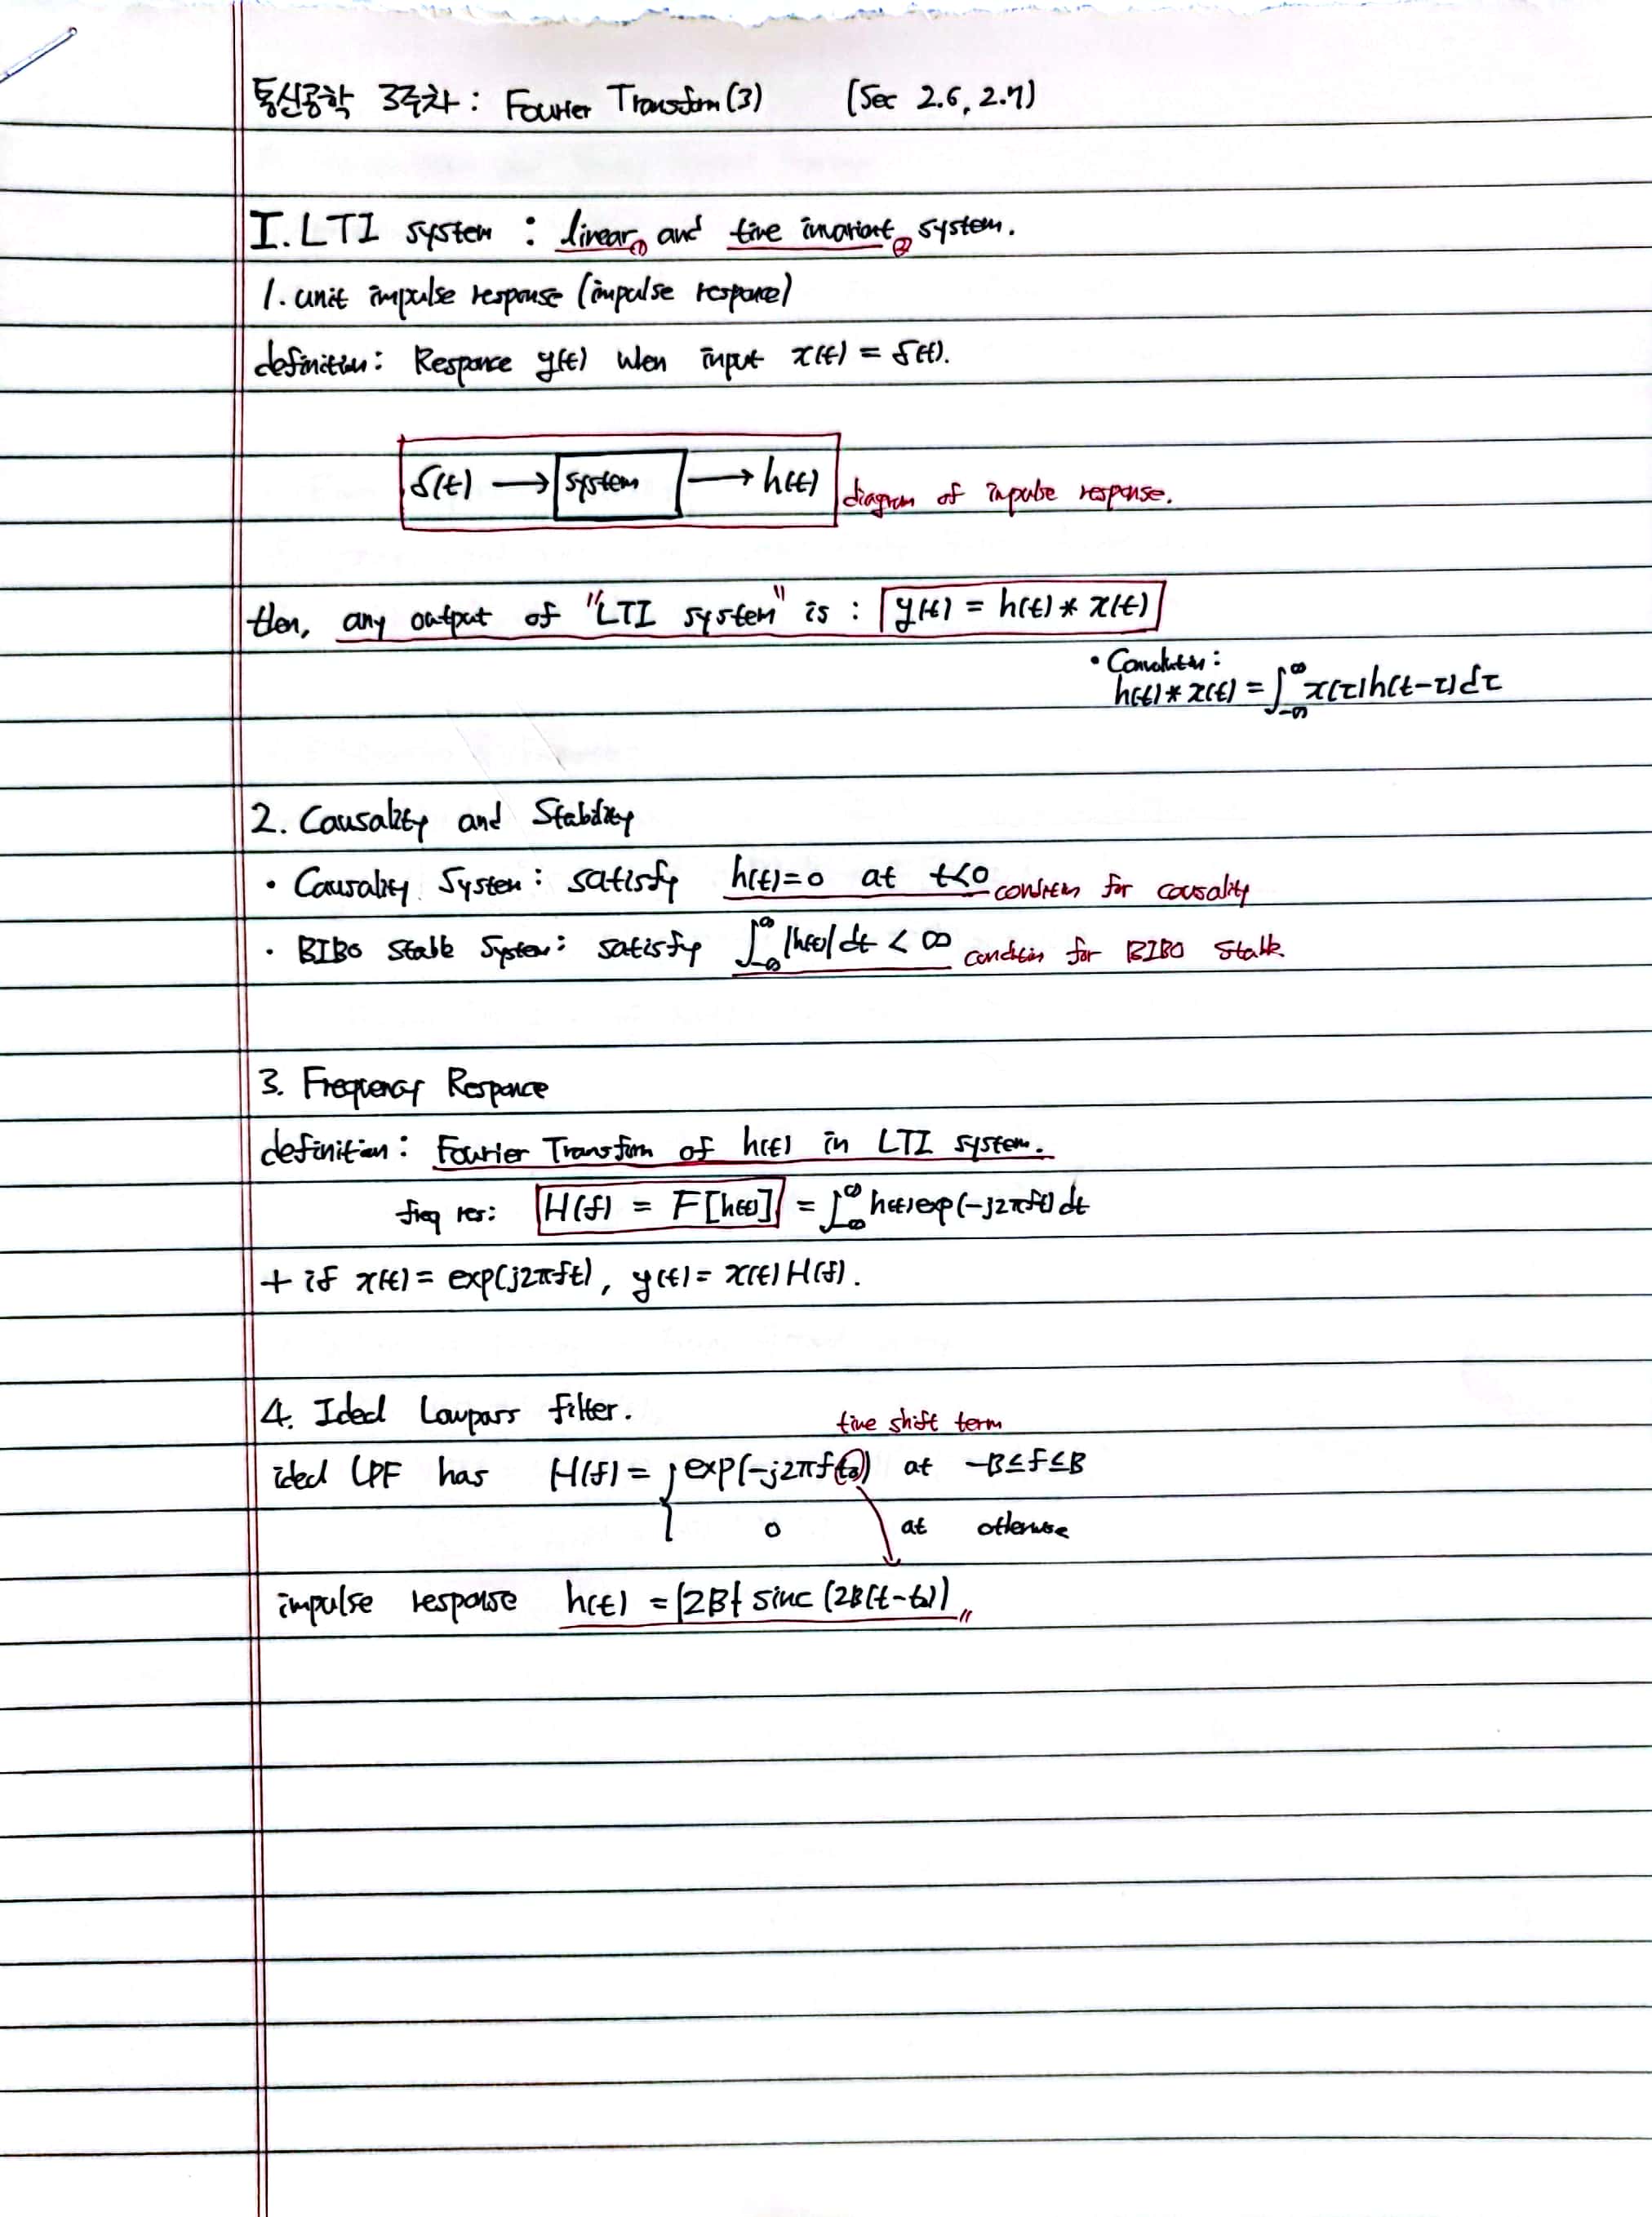 통신공학 3주차 : Fourier Transform (3) (Sec 2.6, 2.7)
I. LTI system : linear① and time invariant② system.
1. unit impulse response (impulse response)
definition: Responce y(t) when input x(t) = δ(t).
δ(t) → system → h(t) diagram of impulse response.
then, any output of "LTI system" is : y(t) = h(t) * x(t)
• Convolution :
h(t) * x(t) = ∫_{-∞}^{∞} x(τ)h(t-τ)dτ
2. Causality and Stability
• Causality System : satisfy h(t)=0 at t<0 condition for causality
• BIBO Stable System : satisfy ∫_{-∞}^{∞} |h(t)| dt < ∞ condition for BIBO Stable
3. Frequency Responce
definition : Fourier Transform of h(t) in LTI system.
freq res: H(f) = F[h(t)] = ∫_{-∞}^{∞} h(t)exp(-j2πft) dt
+ if x(t) = exp(j2πft), y(t) = x(t)H(f).
4. Ideal Lowpass filter.
time shift term
ideal LPF has H(f) = { exp(-j2πft₀) at -B≤f≤B
0 at otherwise
impulse response h(t) = |2B| sinc (2B(t-t₀)) 〃